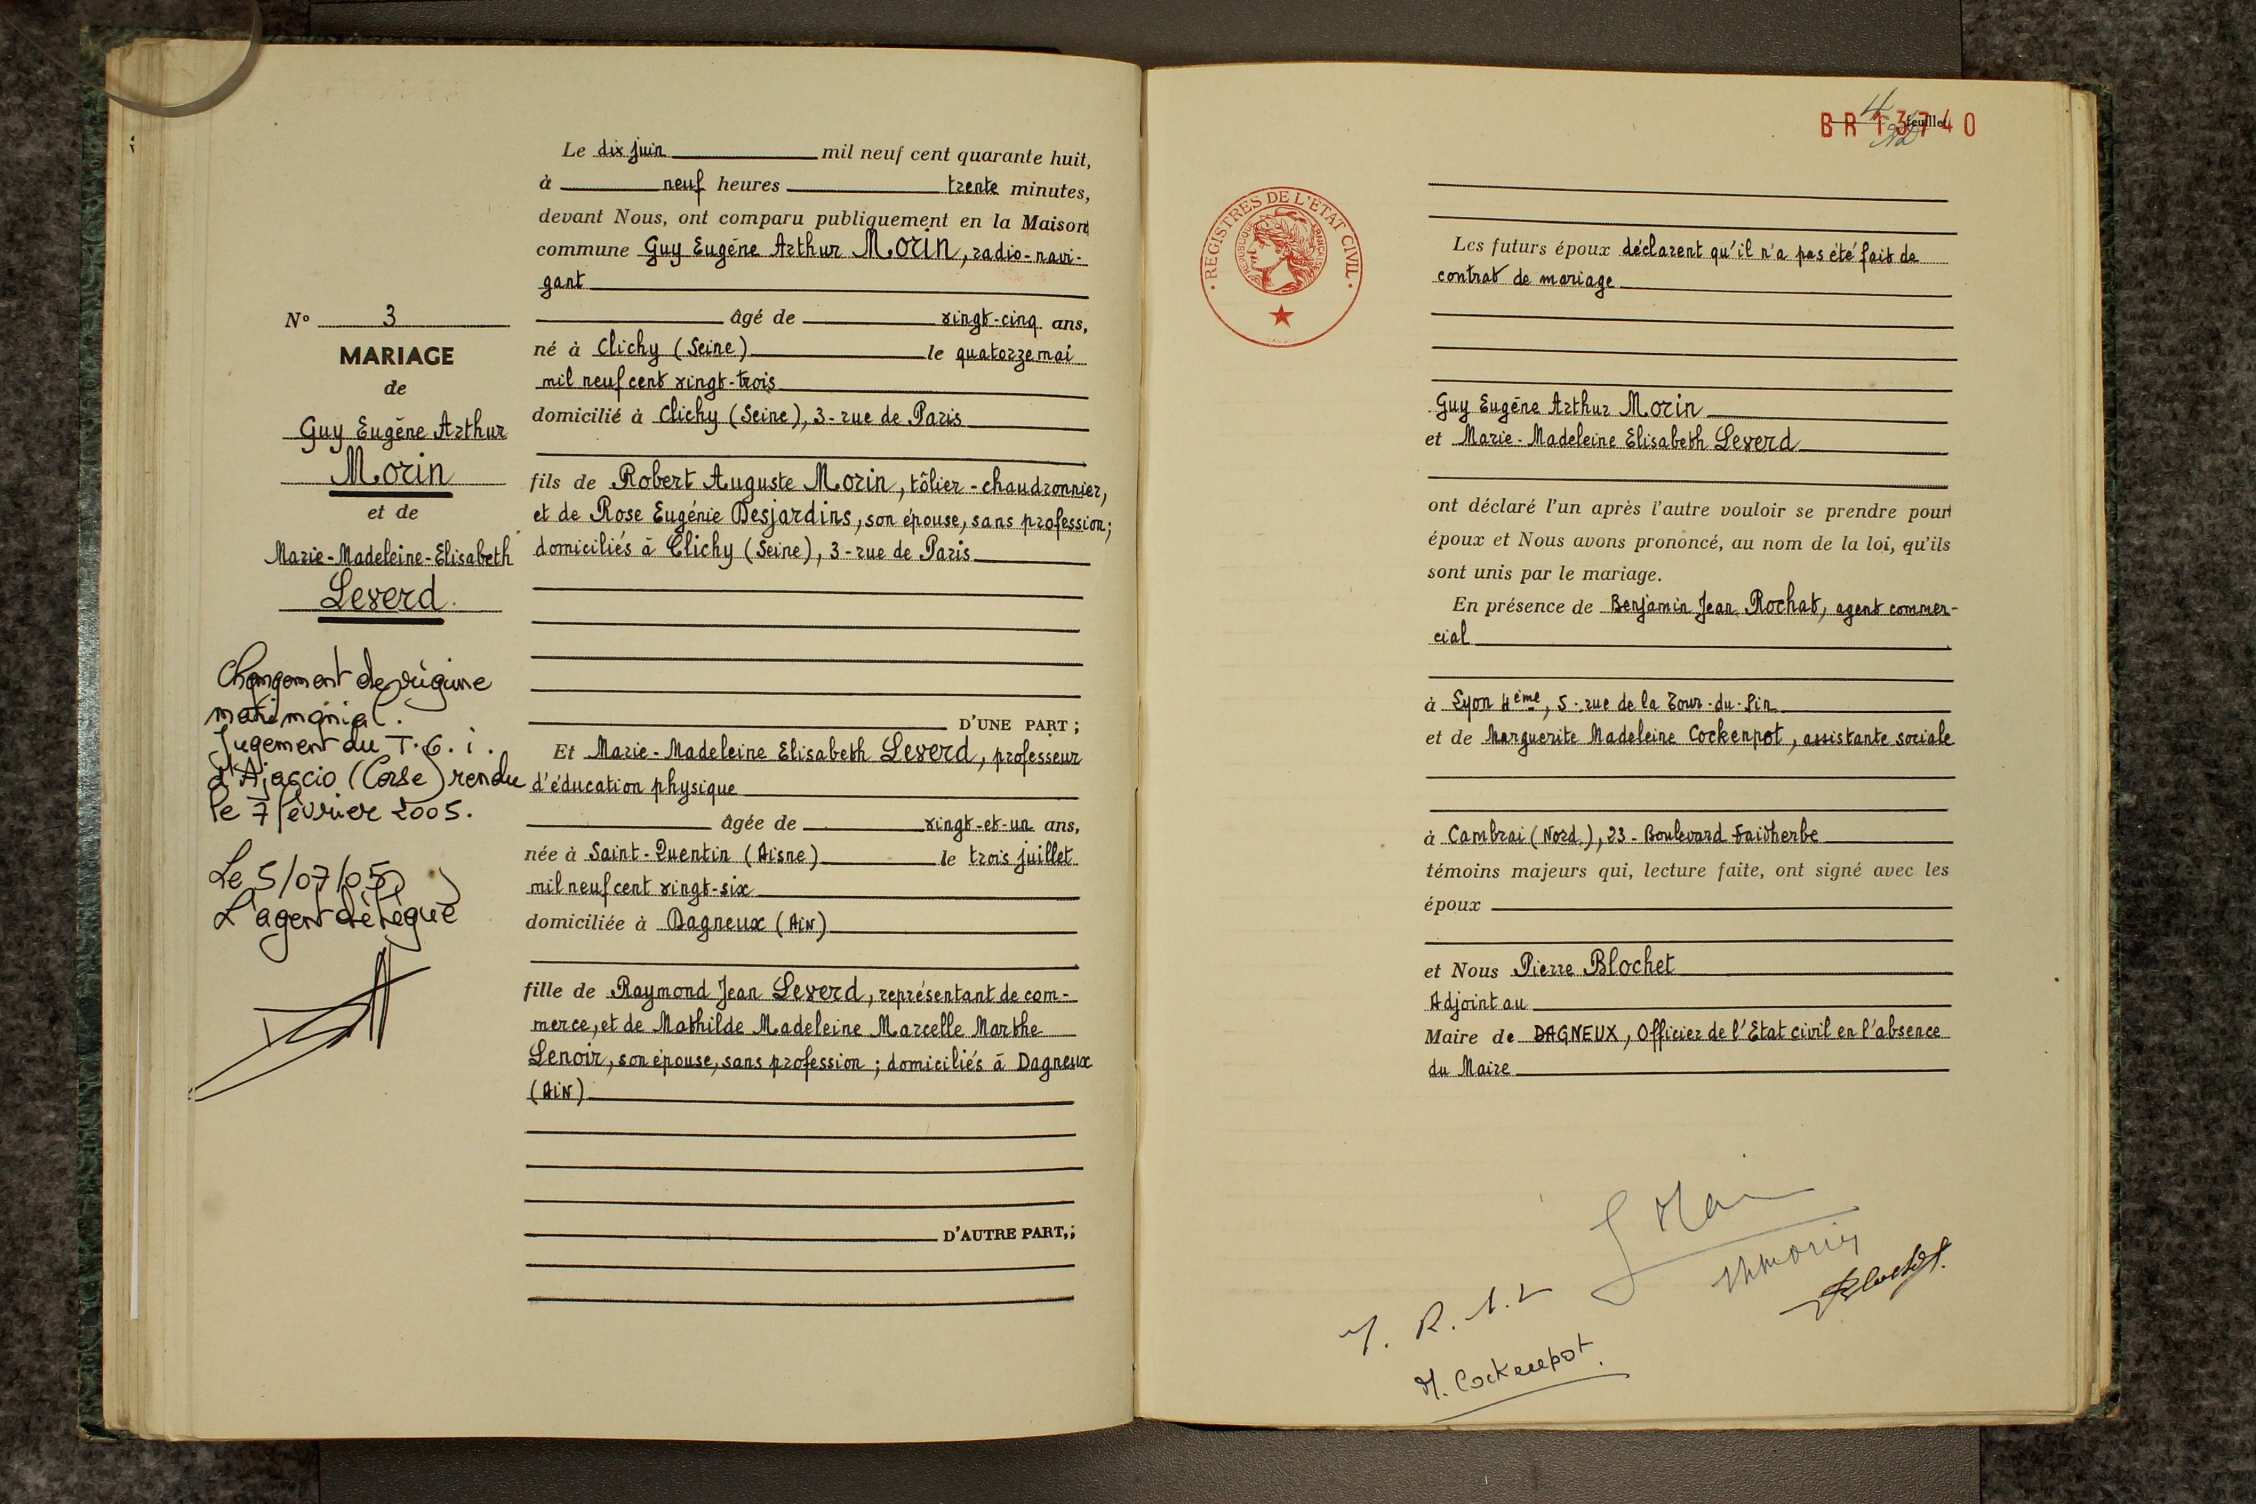 Le dix juin mil neuf cent quarante huit,
à neuf heures trente minutes,
devant Nous, ont comparu publiquement en la Maison
commune Guy Eugène Arthur Morin, radio-navi-
gant
âgé de vingt-cinq ans,
né à Clichy (Seine) le quatorze mai
mil neuf cent vingt-trois
domicilié à Clichy (Seine), 3 - rue de Paris
fils de Robert Auguste Morin, tôlier-chaudronnier,
et de Rose Eugénie Desjardins, son épouse, sans profession;
domiciliés à Clichy (Seine), 3 - rue de Paris
D'UNE PART ;
Et Marie-Madeleine Elisabeth Leverd, professeur
d'éducation physique
âgée de vingt-et-un ans,
née à Saint-Quentin (Aisne) le trois juillet
mil neuf cent vingt-six
domiciliée à Dagneux (Ain)
fille de Raymond Jean Leverd, représentant de com-
merce, et de Mathilde Madeleine Marcelle Marthe
Lenoir, son épouse, sans profession ; domiciliés à Dagneux
(Ain)
D'AUTRE PART, ;
N° 3
MARIAGE
de
Guy Eugène Arthur
Morin
et de
Marie-Madeleine-Elisabeth
Leverd.
Changement de régime
matrimonial.
Jugement du T.G.i.
d'Ajaccio (Corse) rendu
le 7 février 2005.
Le 5/07/05
L'agent délégué
BR 13740
feuillet
REGISTRES DE L'ETAT CIVIL
REPUBLIQUE FRANÇAISE
Les futurs époux déclarent qu'il n'a pas été fait de
contrat de mariage
Guy Eugène Arthur Morin
et Marie-Madeleine Elisabeth Leverd
ont déclaré l'un après l'autre vouloir se prendre pour
époux et Nous avons prononcé, au nom de la loi, qu'ils
sont unis par le mariage.
En présence de Benjamin Jean Rochat, agent commer-
cial
à Lyon 4ème, 5 - rue de la Tour-du-Pin
et de Marguerite Madeleine Cockenpot, assistante sociale
à Cambrai (Nord), 23 - Boulevard Faidherbe
témoins majeurs qui, lecture faite, ont signé avec les
époux
et Nous Pierre Blochet
Adjoint au
Maire de DAGNEUX, Officier de l'Etat civil en l'absence
du Maire
Blochet
M. Cockenpot.